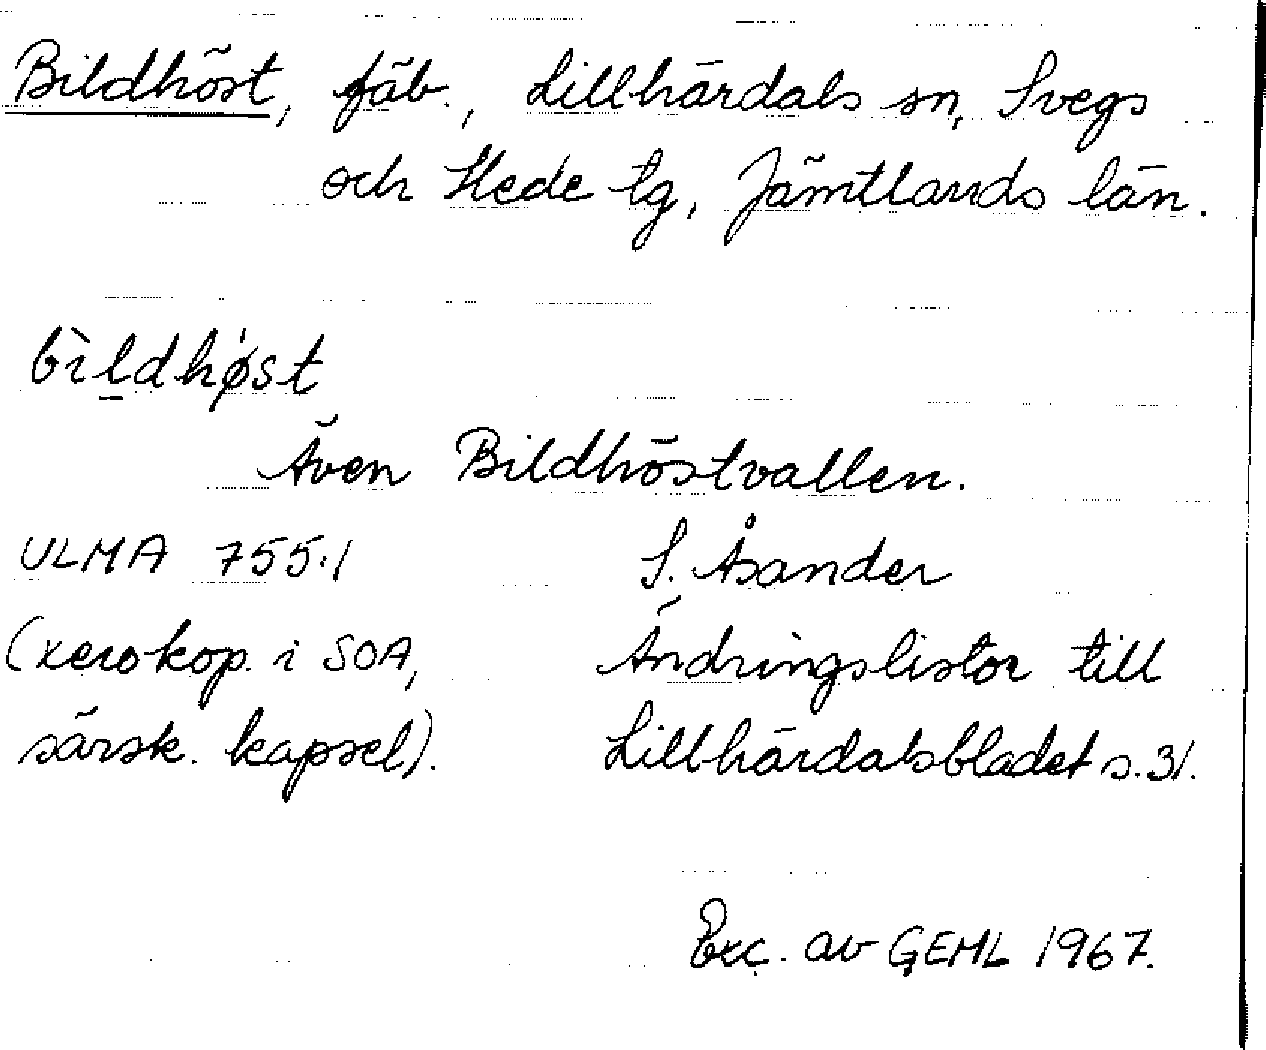 Bildhöst, fäb., Lillhärdals sn, Svegs
och Hede tg, Jämtlands län.
bìl̠dhǿst
Även Bildhöstvallen.
ULMA 755:1 S. Åsander
(xerokop. i SOA, Ändringslistor till
särsk. kapsel). Lillhärdalsbladet s. 31.
Exc. av GEML 1967.